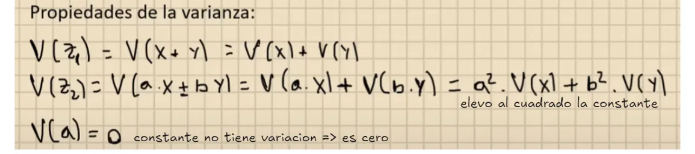 Propiedades de la varianza:
V(z₁) = V(x + y) = V(x) + V(y)
V(z₂) = V(a.x ± b y) = V(a.x) + V(b.y) = a².V(x) + b².V(y)
elevo al cuadrado la constante
V(a) = 0 constante no tiene variacion => es cero